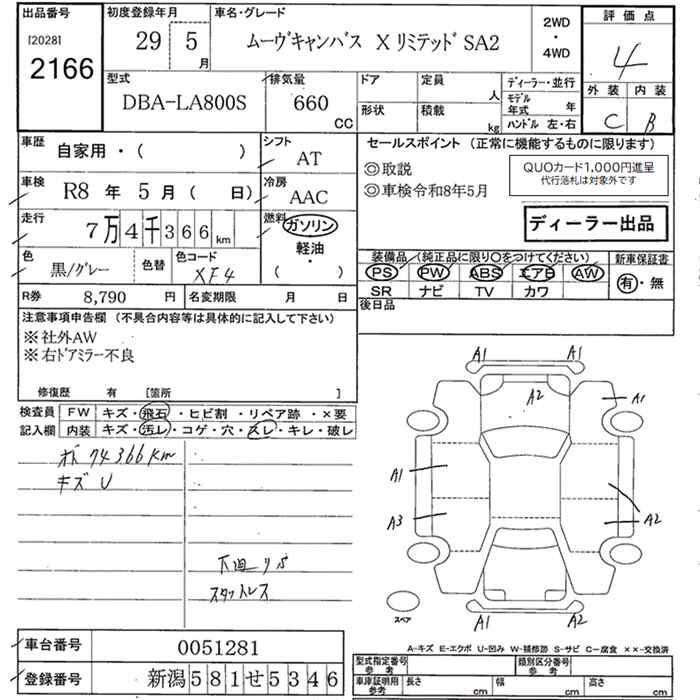 出品番号
[2028]
2166
初度登録年月
29 5
月
車名・グレード
ムーヴキャンバス X リミテッド SA2
2WD
・
4WD
評価点
4
外装 内装
C B
型式
DBA-LA800S
排気量
660
CC
ドア
定員
人
形状
積載
kg
ディーラー・並行
モデル
年式 年
ハンドル 左・右
車歴
自家用・( )
シフト
AT
車検
R8 年 5 月 ( 日)
冷房
AAC
走行
7万4千366km
燃料
ガソリン
軽油
・
( )
色
黒/グレー
色替
色コード
XF4
R券 8,790 円
名変期限 月 日
セールスポイント (正常に機能するものに限ります)
◎取説
◎車検令和8年5月
QUOカード1,000円進呈
代行落札は対象外です
ディーラー出品
装備品 (純正品に限り○をつけてください)
PS PW ABS エアB AW
SR ナビ TV カワ
新車保証書
有・無
後日品
注意事項申告欄 (不具合内容等は具体的に記入して下さい)
※社外AW
※右ドアミラー不良
修復歴 有 [箇所 ]
検査員
記入欄
FW キズ・飛石・ヒビ割・リペア跡・×要
内装 キズ・汚レ・コゲ・穴・スレ・キレ・破レ
74366km
キズ U
下回りS
スタットレス
A1 A1
A2
A1
A1
A3
A2
A1 A2
スペア
A-キズ E-エクボ U-凹み W-補修跡 S-サビ C-腐食 ××-交換済
車台番号 0051281
登録番号 新潟581せ5346
型式指定番号
参考
類別区分番号
参考
車庫証明用
参考
長さ cm
幅 cm
高さ cm